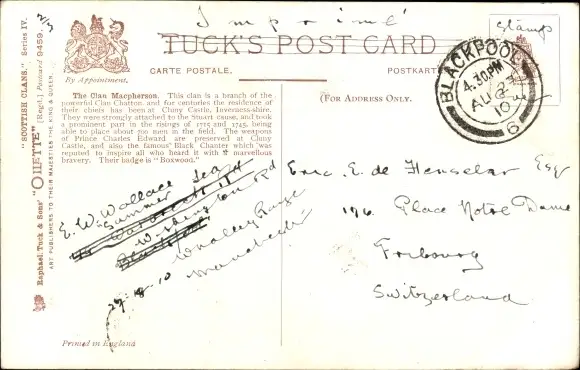 Imprimé
TUCK'S POST CARD
CARTE POSTALE. POSTKARTE
By Appointment.
(FOR ADDRESS ONLY.)
Stamp
BLACKPOOL
4.30PM
AU
10
6
"SCOTTISH CLANS," Series IV.
"OILETTE" [Regd.] Postcard 9459.
Raphael Tuck & Sons'
ART PUBLISHERS TO THEIR MAJESTIES THE KING & QUEEN.
2/3
The Clan Macpherson. This clan is a branch of the
powerful Clan Chattan, and for centuries the residence of
their chiefs has been at Cluny Castle, Inverness-shire.
They were strongly attached to the Stuart cause, and took
a prominent part in the risings of 1715 and 1745, being
able to place about 700 men in the field. The weapons
of Prince Charles Edward are preserved at Cluny
Castle, and also the famous Black Chanter which was
reputed to inspire all who heard it with marvellous
bravery. Their badge is "Boxwood."
E. W. Wallace
Summer
Withington Rd
Whalley Range
Manchester
27.8.10
Eric. E. de Henselar Esq
196. Place Notre Dame
Fribourg
Switzerland
Printed in England